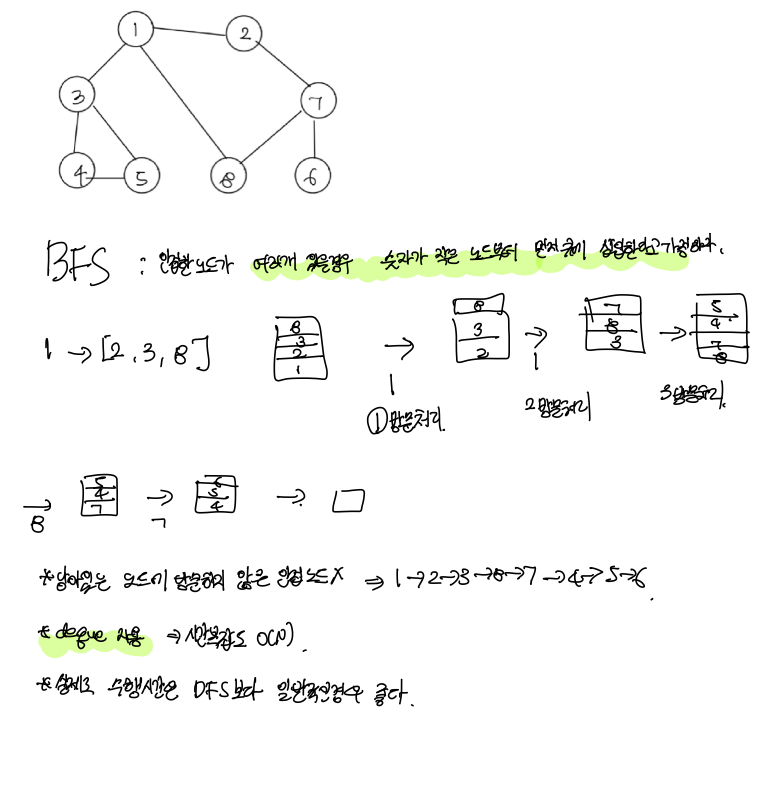 1
2
3
7
4
5
8
6
BFS : 인접한 노드가 여러개 있을경우 숫자가 작은 노드부터 먼저 큐에 삽입한다고 가정하자.
1 → [2, 3, 8]
8
3
2
1
→
8
3
2
→
7
8
3
→
5
4
7
8
1
①방문처리
1
2방문처리
3방문처리
→
8
5
4
7
→
7
6
5
4
→
*남아있는 노드에 방문하지 않은 인접노드X ⇒ 1→2→3→8→7→4→5→6.
* deque 사용 ⇒ 시간복잡도 O(N).
*실제로 수행시간은 DFS보다 일반적인경우 좋다.